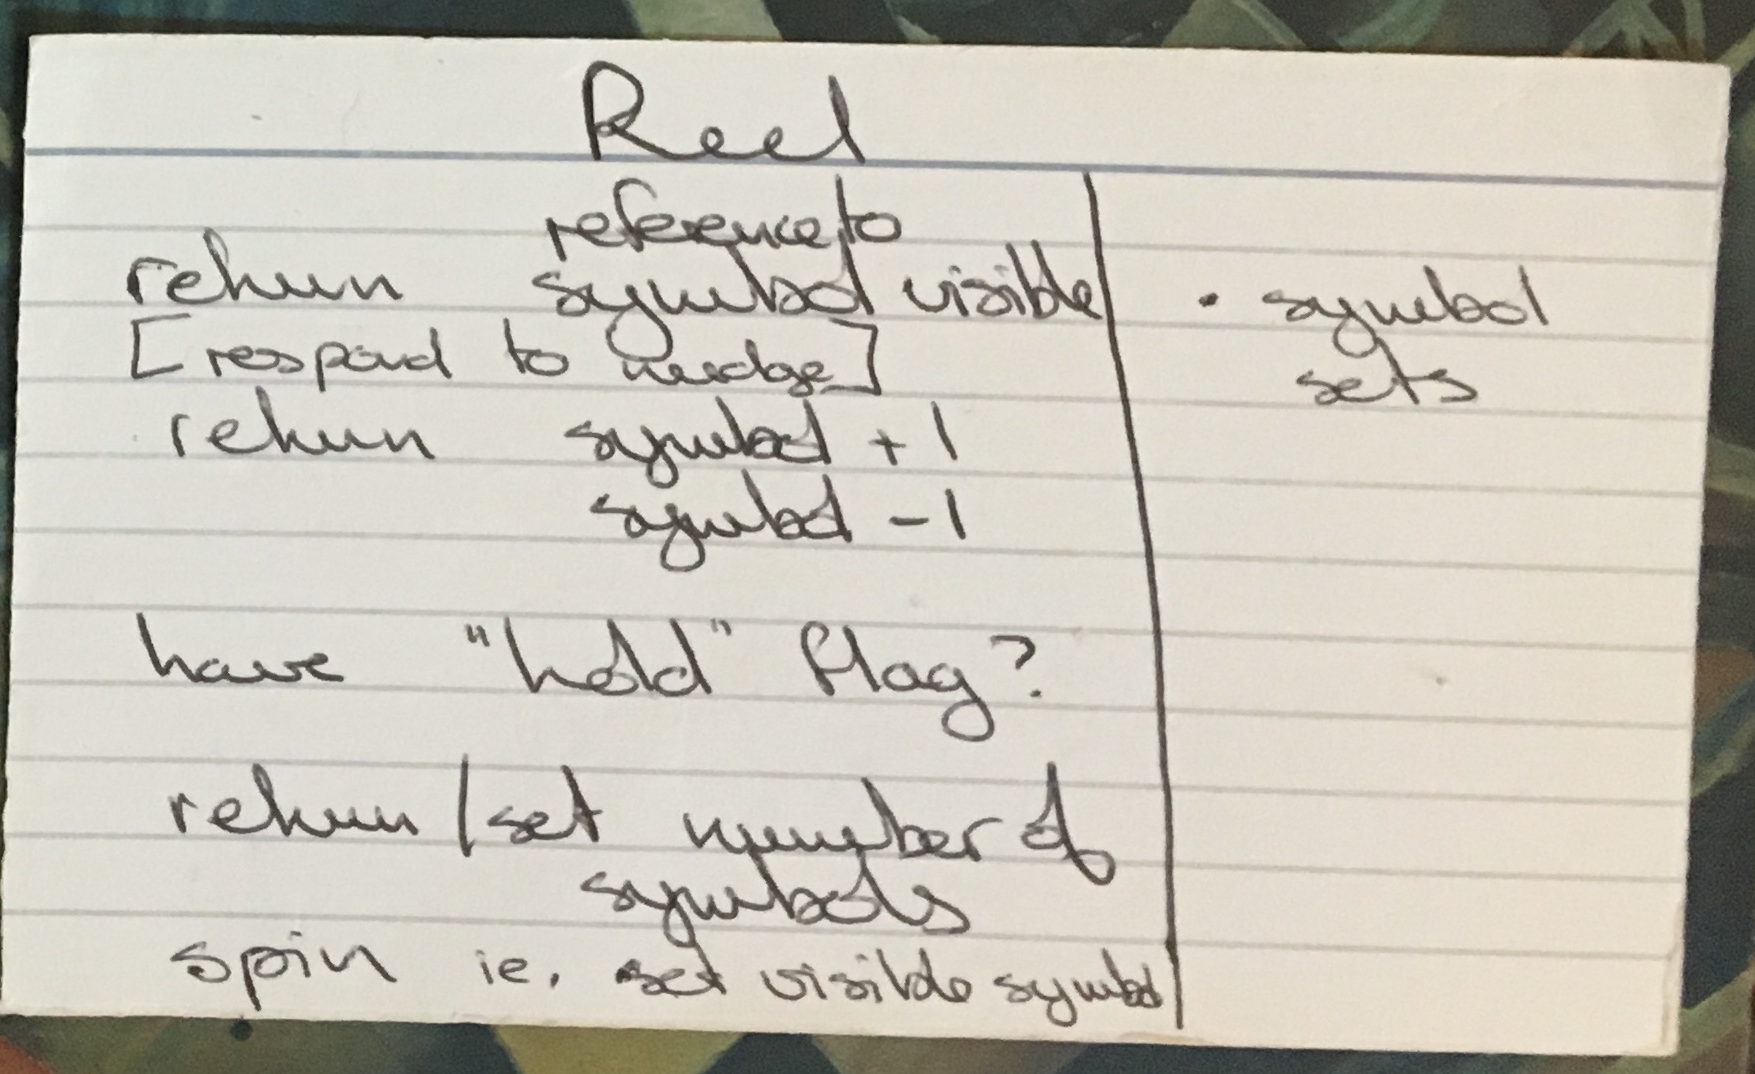 Reel
reference to
return symbol visible
[respond to nudge]
return symbol + 1
symbol - 1
have "hold" flag?
return / set number of
symbols
spin ie. set visible symbol
• symbol
sets